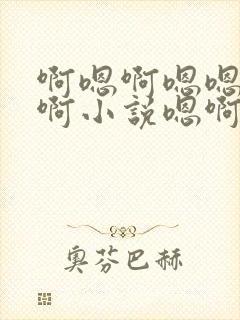 啊嗯啊嗯嗯
啊小说嗯啊
奥芬巴赫